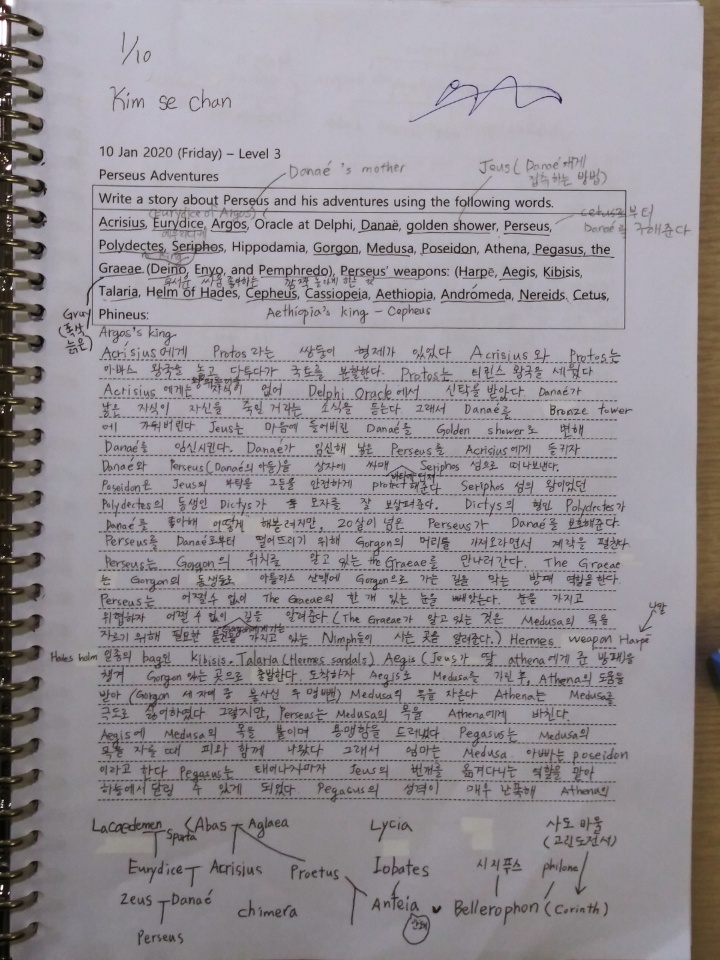 1/10
Kim se chan
10 Jan 2020 (Friday) – Level 3
Danaé's mother
Jeus (Danaé에게 접촉하는 방법)
Perseus Adventures
Write a story about Perseus and his adventures using the following words.
(Eurydice of Argos)
Acrisius, Eurydice, Argos, Oracle at Delphi, Danaë, golden shower, Perseus,
cetus로부터 Danaé를 구해준다
Polydectes, Seriphos, Hippodamia, Gorgon, Medusa, Poseidon, Athena, Pegasus, the
Graeae (Deino, Enyo, and Pemphredo), Perseus' weapons: (Harpe, Aegis, Kibisis,
Talaria, Helm of Hades, Cepheus, Cassiopeia, Aethiopia, Andromeda, Nereids, Cetus,
Gray
Phineus:
Aethiopia's king - Cepheus
Argos's king
Acrisius에게 Protos라는 쌍둥이 형제가 있었다 Acrisius와 Protos는
왕국을 놓고 다투다가 국토를 분할한다. Protos는 티린스 왕국을 세웠다
Acrisius에게는 자식이 없어 Delphi Oracle에서 신탁을 받았다 Danaé가
낳은 자식이 자신을 죽일 거라는 소식을 듣는다 그래서 Danaé를 Bronze tower
에 가둬버린다 Jeus는 마음에 들어버린 Danaé를 Golden shower로 변해
Danaé를 임신시킨다. Danaé가 임신해 낳은 Perseus를 Acrisius에게 들키자
Danaé와 Perseus(Danaé의 아들)을 상자에 싸매 Seriphos 섬으로 떠나보낸다.
Poseidon은 Jeus의 부탁을 그들을 안전하게 protect해준다 Seriphos 섬의 왕이었던
Polydectes의 동생인 Dictys가 모자를 잘 보살펴준다. Dictys의 형인 Polydectes가
Danaé를 좋아해 어떻게 해볼려지만, 20살이 넘은 Perseus가 Danaé를 보호해준다.
Perseus를 Danaé로부터 떨어뜨리기 위해 Gorgon의 머리를 가져오라면서 계략을 펼친다.
Perseus는 Gorgon의 위치를 알고 있는 the Graeae를 만나러간다. The Graeae
는 Gorgon의 동생들로 아틀라스 산맥에 Gorgon으로 가는 길을 막는 방패 역할을 한다.
Perseus는 어쩔수 없이 The Graeae의 한 개 있는 눈을 빼앗는다. 눈을 가지고
위협하자 어쩔 수 없이 길을 알려준다 (The Graeae가 알고 있는 것은 Medusa의 목을
자르기 위해 필요한 물건들을 가지고 있는 Nimph들이 사는 곳을 알려준다.) Hermes weapon Harpé
Hades holm 일종의 bag인 Kibisis. Talaria (Hermes sandals) Aegis (Jeus가 딸 athena에게 준 방패)를
챙겨 Gorgon 있는 곳으로 출발한다. 도착하자 Aegis로 Medusa를 기린후, Athena의 도움을
받아 (Gorgon 세 자매 중 불사신 두 명) Medusa의 목을 자른다 Athena는 Medusa를
극도로 싫어하였다 그렇지만, Perseus는 Medusa의 목을 Athena에게 바친다.
Aegis에 Medusa의 목을 붙이며 용맹함을 드러냈다 Pegasus는 Medusa의
목을 자를 때 피와 함께 나왔다 그래서 엄마는 Medusa 아빠는 poseidon
이라고 한다 Pegasus는 태어나자마자 Jeus의 번개를 옮겨다니는 역할을 맡아
하늘에서 달릴 수 있게 되었다. Pegasus의 성격이 매우 난폭해 Athena의
Lacaedemen Sparta Abas Aglaea Lycia 사도 바울 (고린도전서)
Eurydice Acrisius Proetus Iobates 시지푸스 philone
Zeus Danaé chimera Anteia Bellerophon (Corinth)
Perseus